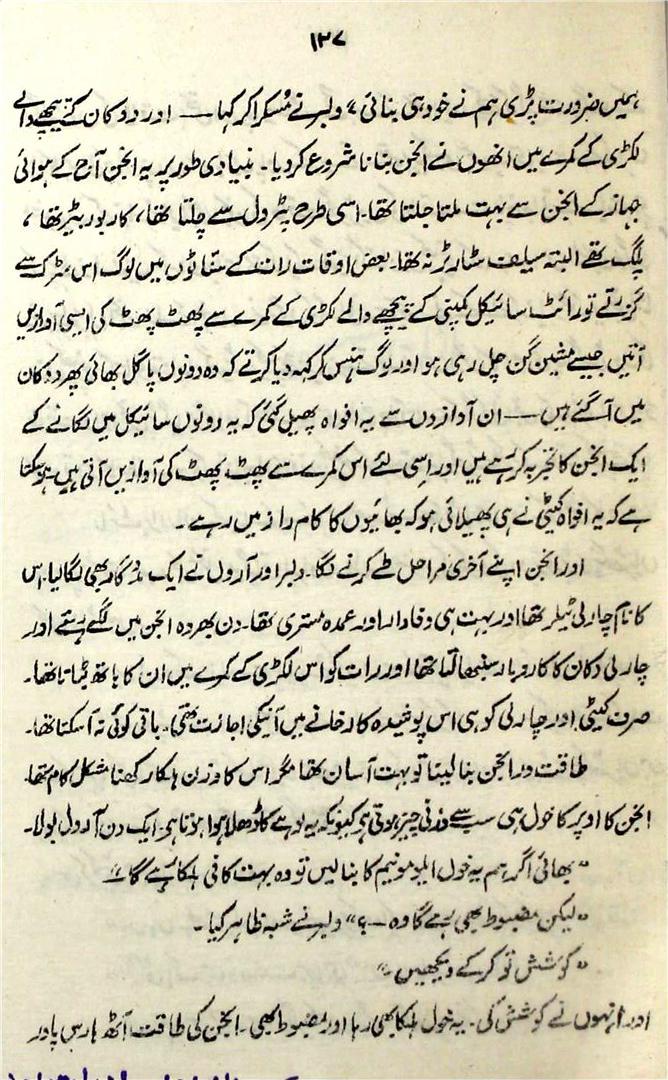 ۱۳۷
ہمیں ضرورت پڑی ہم نے خود ہی بنائی“ ولبر نے مُسکرا کر کہا — اور دوکان کے پیچھے والے
لکڑی کے کمرے میں انھوں نے انجن بنانا شروع کر دیا۔ بنیادی طور پر یہ انجن آج کے ہوائی
جہاز کے انجن سے بہت ملتا جلتا تھا۔ اسی طرح پٹرول سے چلتا تھا، کاربوریٹر تھا،
پلگ تھے البتہ سیلف سٹارٹر نہ تھا۔ بعض اوقات رات کے سناٹوں میں لوگ اس سڑک سے
گزرتے تو رائٹ سائیکل کمپنی کے پیچھے والے لکڑی کے کمرے سے پھٹ پھٹ کی ایسی آوازیں
آتیں جیسے مشین گن چل رہی ہو اور لوگ ہنس کر کہہ دیا کرتے کہ وہ دونوں پاگل بھائی پھر دوکان
میں آ گئے ہیں — ان آوازوں سے یہ افواہ پھیل گئی کہ یہ دونوں سائیکل میں لگانے کے
ایک انجن کا تجربہ کر رہے ہیں اور اسی لئے اس کمرے سے پھٹ پھٹ کی آوازیں آتی ہیں۔ ہو سکتا
ہے کہ یہ افواہ کیٹی نے ہی پھیلائی ہو کہ بھائیوں کا کام راز میں رہے۔
اور انجن اپنے آخری مراحل طے کرنے لگا۔ ولبر اور آرول نے ایک مددگار بھی لگا لیا۔ اس
کا نام چارلی ٹیلر تھا اور بہت ہی وفادار اور عمدہ مستری تھا۔ دن بھر وہ انجن میں لگے رہتے اور
چارلی دکان کا کاروبار سنبھالتا تھا اور رات کو اس لکڑی کے کمرے میں ان کا ہاتھ بٹاتا تھا۔
صرف کیٹی اور چارلی کو ہی اس پوشیدہ کارخانے میں آنیکی اجازت تھی۔ باقی کوئی نہ آ سکتا تھا۔
طاقت ور انجن بنا لینا تو بہت آسان تھا مگر اس کا وزن ہلکا رکھنا مشکل کام تھا۔
انجن کا اوپر کا خول ہی سب سے وزنی چیز ہوتی ہو کیونکہ یہ لوہے کا ڈھلا ہوا ہوتا ہو۔ ایک دن آرول بولا۔
”بھائی اگر ہم یہ خول ایلومونیم کا بنا لیں تو وہ بہت کافی ہلکا رہے گا۔“
”لیکن مضبوط بھی رہے گا وہ —؟“ ولبر نے شبہ ظاہر کیا۔
”کوشش تو کر کے دیکھیں۔“
اور انہوں نے کوشش کی۔ یہ خول ہلکا بھی رہا اور مضبوط بھی۔ انجن کی طاقت آٹھ ہارس پاور